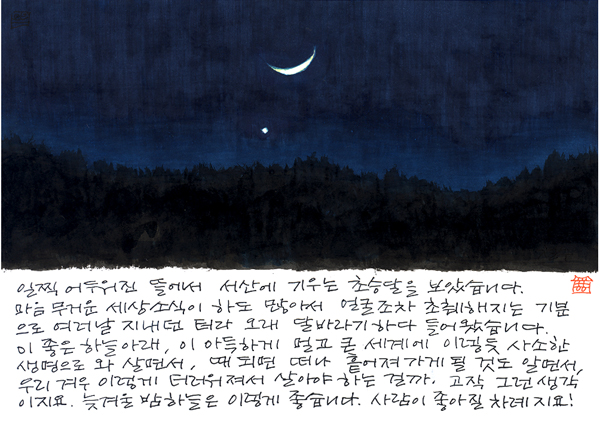 일찍 어두워진 뜰에서 서산에 기우는 초승달을 보았습니다.
마음 무거운 세상소식이 하도 많아서 얼굴조차 초췌해지는 기분
으로 여러날 지내던 터라 오래 달바라기하다 들어왔습니다.
이 좋은 하늘아래, 이 아득하게 멀고 큰 세계에 이렇듯 사소한
생명으로 와 살면서, 때 되면 떠나 흩어져가게 될 것도 알면서,
우리 겨우 이렇게 더러워져서 살아야 하는 걸까. 고작 그런 생각
이지요. 늦겨울 밤하늘은 이렇게 좋습니다. 사람이 좋아질 차례지요!